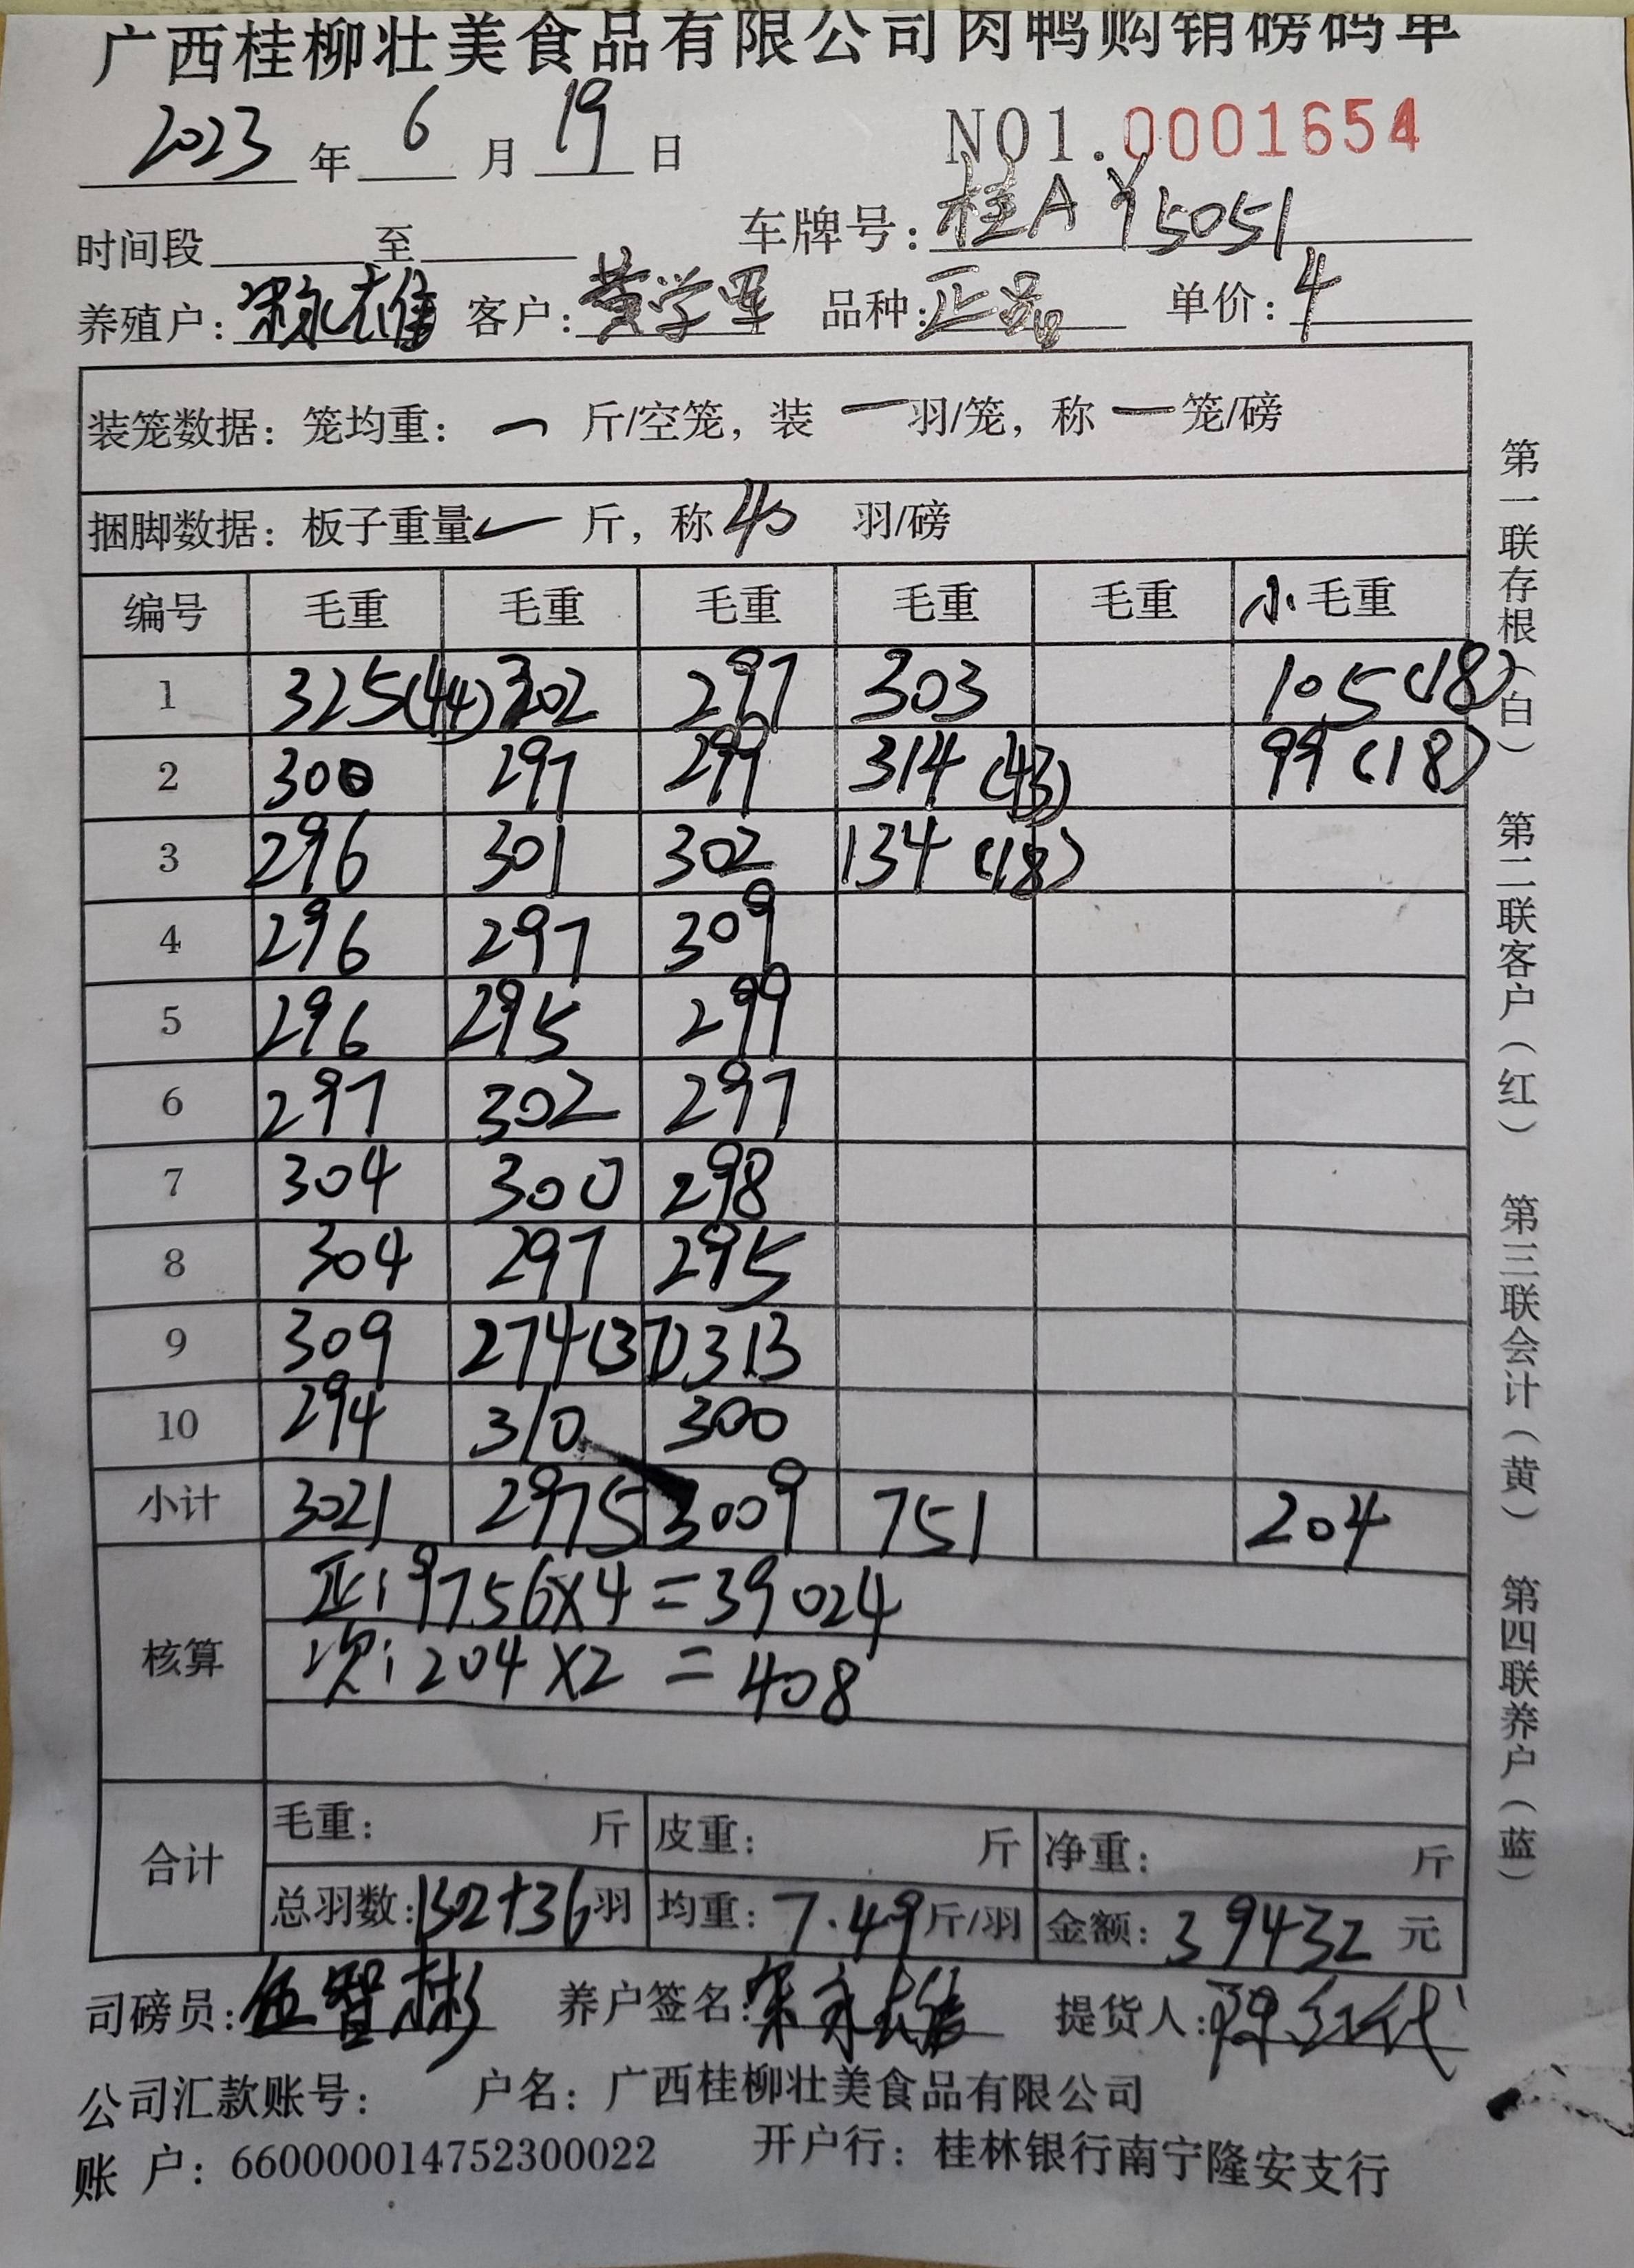 广西桂柳壮美食品有限公司肉鸭购销磅码单
2023 年 6 月 19 日 NO1.0001654
时间段 至 车牌号: 桂A Y15051
养殖户: 宋永雄 客户: 黄学军 品种: 正品 单价: 4
装笼数据: 笼均重: 一 斤/空笼, 装 一 羽/笼, 称 一 笼/磅
捆脚数据: 板子重量 一 斤, 称 40 羽/磅
编号 毛重 毛重 毛重 毛重 毛重 小 毛重
1 325(44) 302 297 303 105(18)
2 300 297 299 314(43) 99(18)
3 296 301 302 134(18)
4 296 297 309
5 296 295 299
6 297 302 297
7 304 300 298
8 304 297 295
9 309 274(37) 313
10 294 310 300
小计 3021 2975 3009 751 204
核算
正: 9756×4=39024
次: 204×2=408
合计
毛重: 斤 皮重: 斤 净重: 斤
总羽数: 1302+36 羽 均重: 7.49 斤/羽 金额: 39432 元
司磅员: 伍智彬 养户签名: 宋永雄 提货人: 代
公司汇款账号: 户名: 广西桂柳壮美食品有限公司
账 户: 660000014752300022 开户行: 桂林银行南宁隆安支行
第一联存根(白) 第二联客户(红) 第三联会计(黄) 第四联养户(蓝)